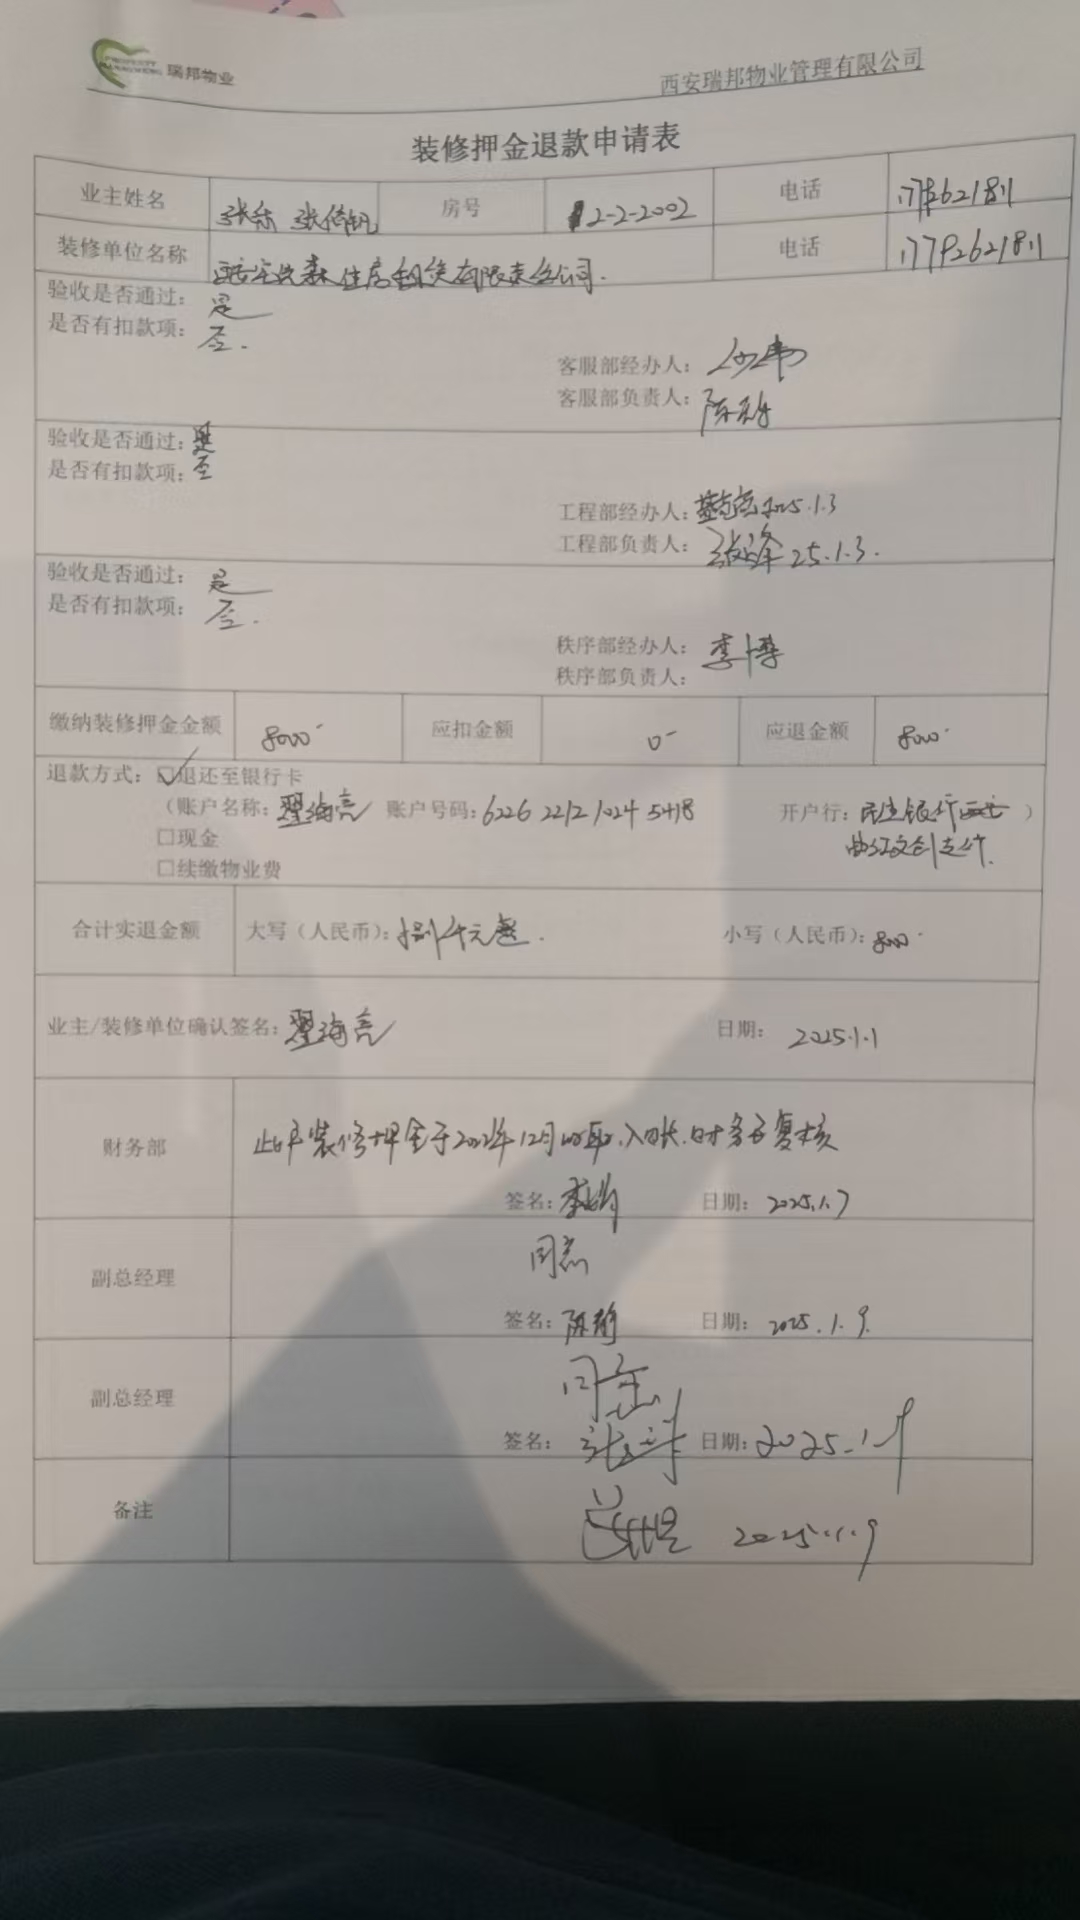 PROPERTY
MANAGEMENT 瑞邦物业
西安瑞邦物业管理有限公司
装修押金退款申请表
业主姓名 房号 2-2-2002 电话
装修单位名称 住房租赁有限责任公司. 电话 17792621811
验收是否通过: 是
是否有扣款项: 否.
客服部经办人:
客服部负责人:
验收是否通过: 是
是否有扣款项: 否
工程部经办人: 2025.1.3
工程部负责人: 25.1.3.
验收是否通过: 是
是否有扣款项: 否.
秩序部经办人: 李博
秩序部负责人:
缴纳装修押金金额 8000 应扣金额 0 应退金额 8000
退款方式: ☑退还至银行卡
(账户名称: 翟海亮 账户号码: 6226 2212 1024 5418 开户行: 民生银行西安 )
曲江文创支行.
□现金
□续缴物业费
合计实退金额 大写(人民币): 捌仟元整. 小写(人民币): 8000
业主/装修单位确认签名: 翟海亮 日期: 2025.1.1
财务部 此户装修押金于 年12月 入账,财务已复核
签名: 日期: 2025.1.7
副总经理 同意
签名: 日期: 2025.1.9.
副总经理 同意
签名: 日期: 2025.1.9
备注 2025.1.9